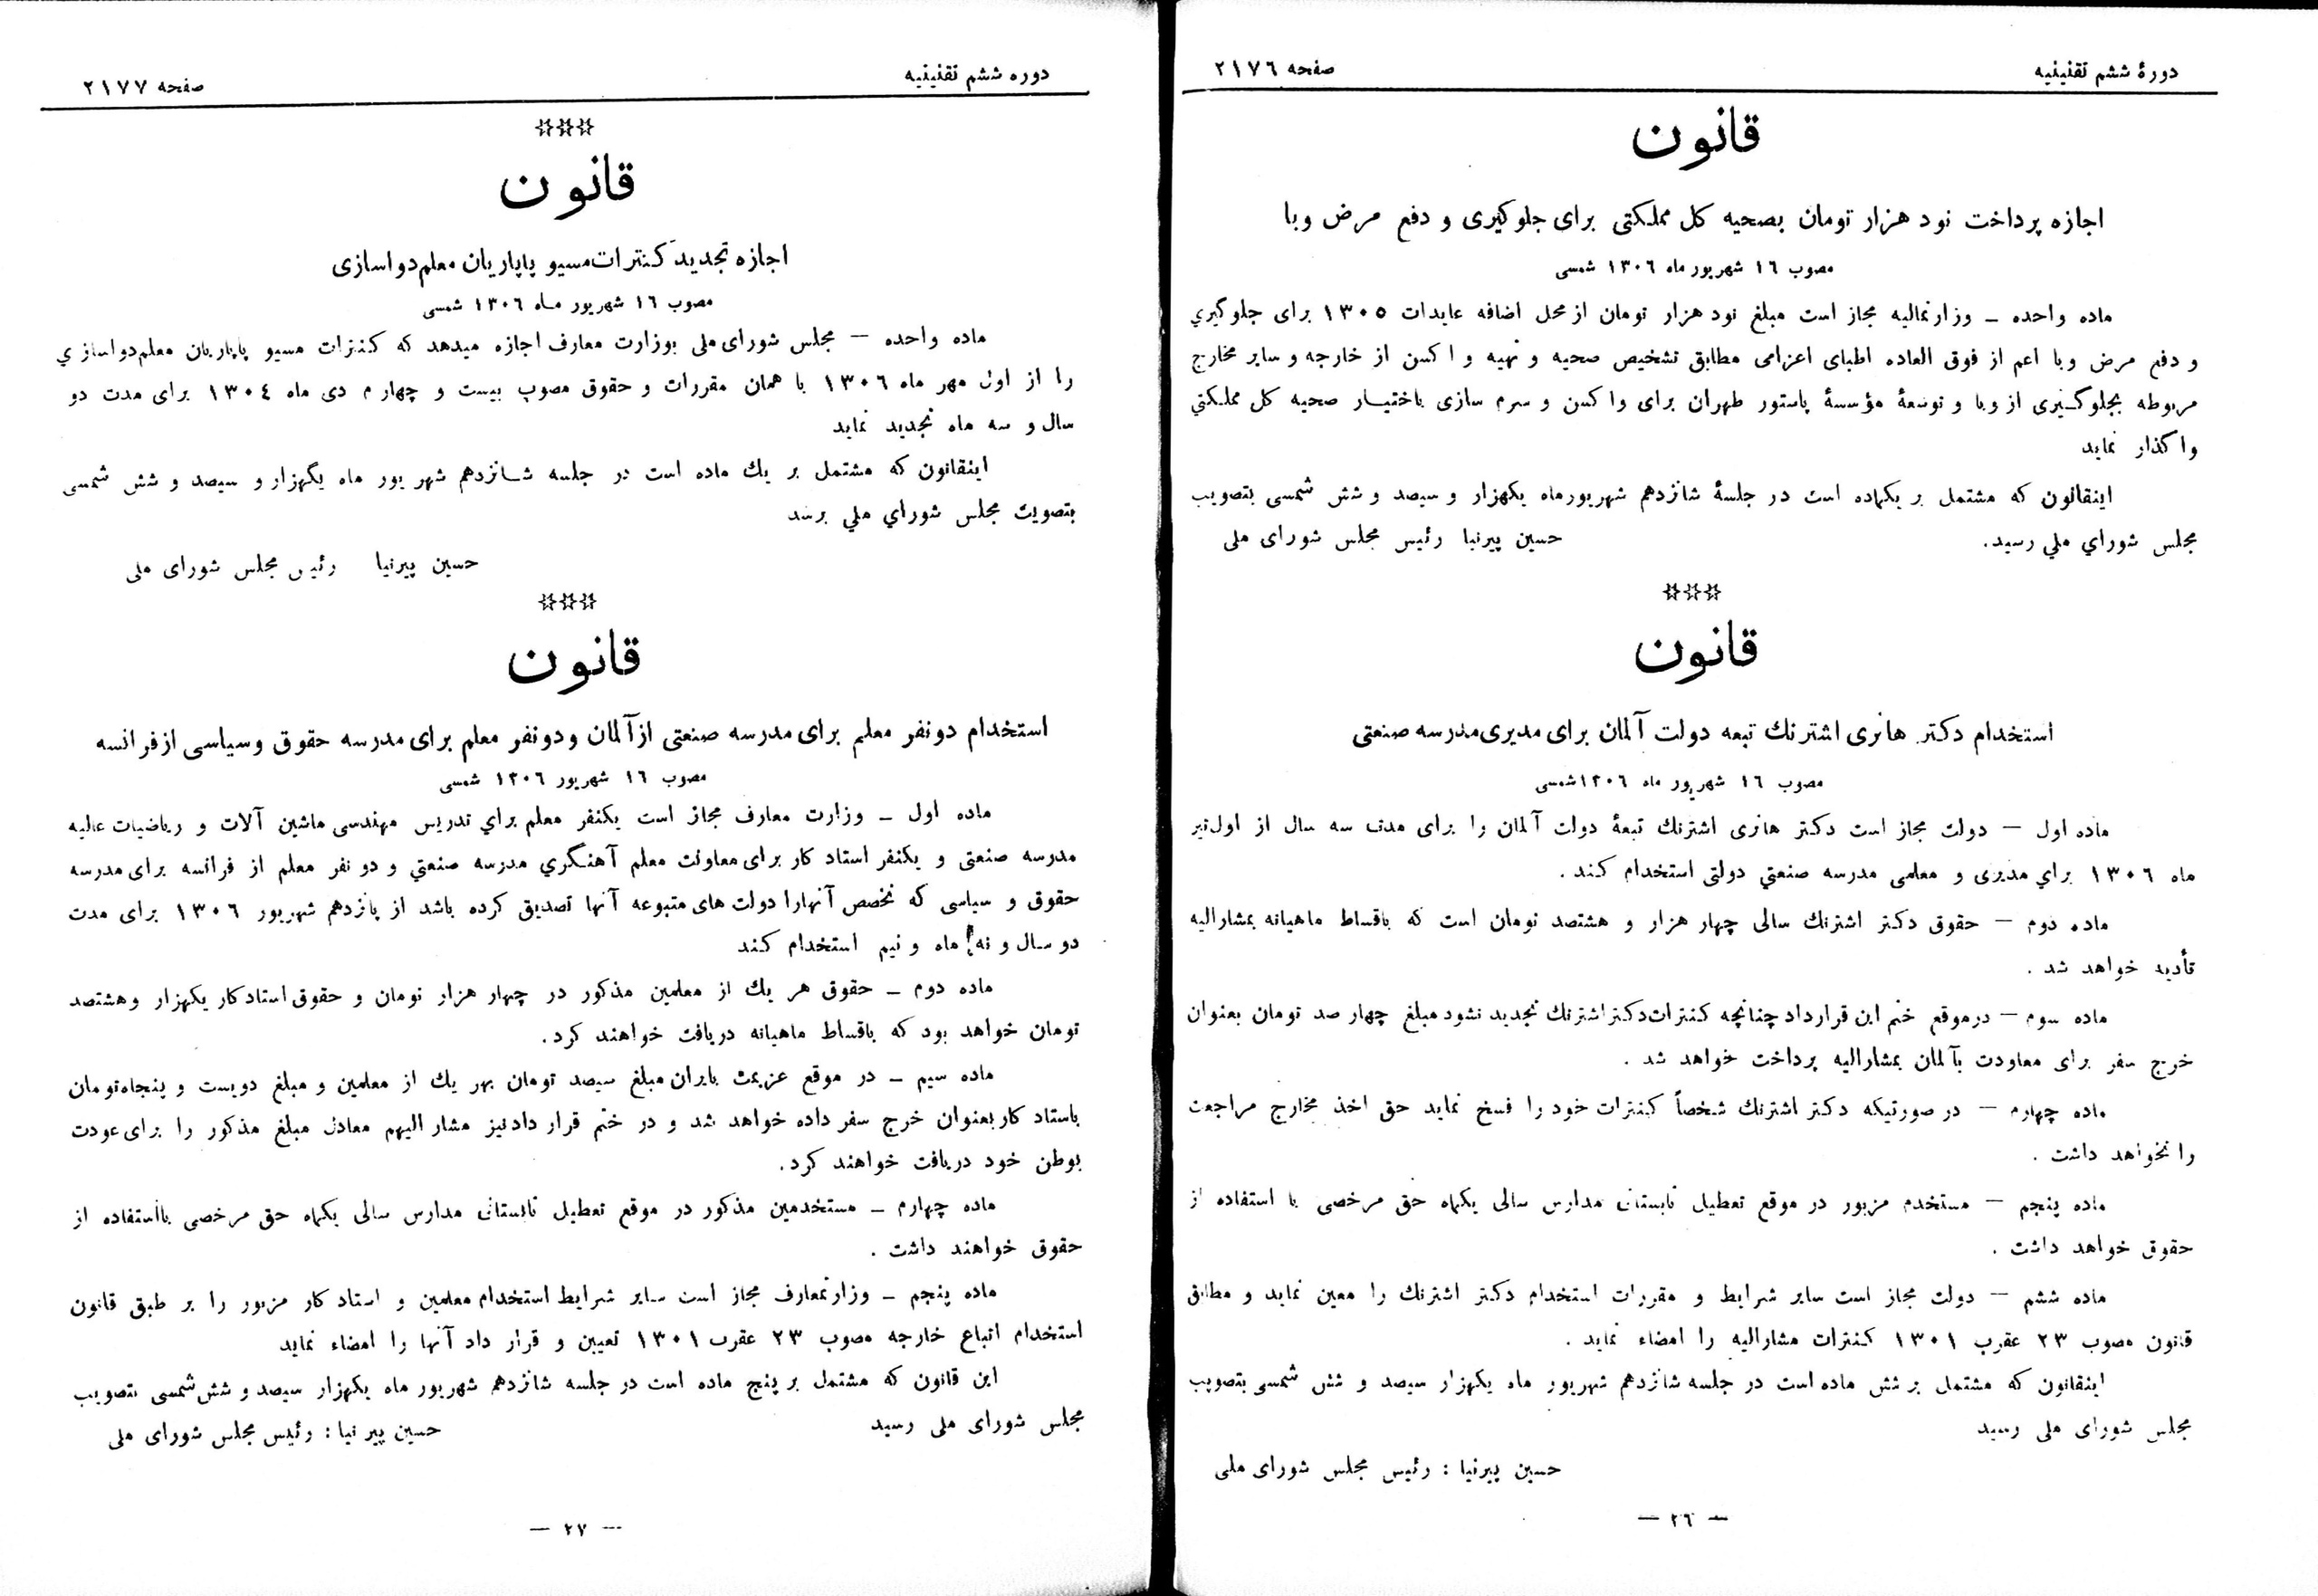 دورهٔ ششم تقنینیه
صفحه ۲۱۷۶
قانون
اجازه پرداخت نود هزار تومان بصحیه کل مملکتی برای جلوگیری و دفع مرض وبا
مصوب ۱۶ شهریور ماه ۱۳۰۶ شمسی
ماده واحده – وزارتمالیه مجاز است مبلغ نود هزار تومان از محل اضافه عایدات ۱۳۰۵ برای جلوگیري
و دفع مرض وبا اعم از فوق العاده اطبای اعزامی مطابق تشخیص صحیه و تهیه و اکسن از خارجه و سایر مخارج
مربوطه بجلوگیری از وبا و توسعهٔ مؤسسهٔ پاستور طهران برای واکسن و سرم سازی باختیار صحیه کل مملکتي
واگذار نماید
اینقانون که مشتمل بر یکماده است در جلسهٔ شانزدهم شهریورماه یکهزار و سیصد و شش شمسی بتصویب
مجلس شوراي ملي رسید.
حسین پیرنیا رئیس مجلس شورای ملی
***
قانون
استخدام دکتر هانری اشترنك تبعه دولت آلمان برای مدیری مدرسه صنعتی
مصوب ۱۶ شهریور ماه ۱۳۰۶ شمسی
ماده اول – دولت مجاز است دکتر هانری اشترنك تبعهٔ دولت آلمان را برای مدت سه سال از اول تیر
ماه ۱۳۰۶ براي مدیری و معلمی مدرسه صنعتي دولتی استخدام کند .
ماده دوم – حقوق دکتر اشترنك سالی چهار هزار و هشتصد تومان است که باقساط ماهیانه بمشارالیه
تأدیه خواهد شد .
ماده سوم – درموقع ختم این قرارداد چنانچه کنترات دکتر اشترنك تجدید نشود مبلغ چهار صد تومان بعنوان
خرج سفر برای معاودت بآلمان بمشارالیه پرداخت خواهد شد .
ماده چهارم – در صورتیکه دکتر اشترنك شخصاً کنترات خود را فسخ نماید حق اخذ مخارج مراجعت
را نخواهد داشت .
ماده پنجم – مستخدم مزبور در موقع تعطیل تابستانی مدارس سالی یکماه حق مرخصی با استفاده از
حقوق خواهد داشت .
ماده ششم – دولت مجاز است سایر شرایط و مقررات استخدام دکتر اشترنك را معین نماید و مطابق
قانون مصوب ۲۳ عقرب ۱۳۰۱ کنترات مشارالیه را امضاء نماید .
اینقانون که مشتمل بر شش ماده است در جلسه شانزدهم شهریور ماه یکهزار سیصد و شش شمسی بتصویب
مجلس شورای ملی رسید
حسین پیرنیا : رئیس مجلس شورای ملی
— ۲۶ —
دوره ششم تقنینیه
صفحه ۲۱۷۷
***
قانون
اجازه تجدید کنترات مسیو پاپاریان معلم دواسازی
مصوب ۱۶ شهریور ماه ۱۳۰۶ شمسی
ماده واحده – مجلس شورای ملی بوزارت معارف اجازه میدهد که کنترات مسیو پاپاریان معلم دواسازي
را از اول مهر ماه ۱۳۰۶ با همان مقررات و حقوق مصوب بیست و چهارم دی ماه ۱۳۰۴ برای مدت دو
سال و سه ماه تجدید نماید
اینقانون که مشتمل بر یك ماده است در جلسه شانزدهم شهریور ماه یگهزار و سیصد و شش شمسی
بتصویت مجلس شوراي ملي برسد
حسین پیرنیا رئیس مجلس شورای ملی
***
قانون
استخدام دونفر معلم برای مدرسه صنعتی از آلمان و دونفر معلم برای مدرسه حقوق و سیاسی از فرانسه
مصوب ۱۶ شهریور ۱۳۰۶ شمسی
ماده اول – وزارت معارف مجاز است یکنفر معلم براي تدریس مهندسی ماشین آلات و ریاضیات عالیه
مدرسه صنعتی و یکنفر استاد کار برای معاونت معلم آهنگري مدرسه صنعتي و دو نفر معلم از فرانسه برای مدرسه
حقوق و سیاسی که تخصص آنهارا دولت های متبوعه آنها تصدیق کرده باشد از پانزدهم شهریور ۱۳۰۶ برای مدت
دو سال و نه ماه و نیم استخدام کند
ماده دوم – حقوق هر یك از معلمین مذکور در چهار هزار تومان و حقوق استاد کار یکهزار و هشتصد
تومان خواهد بود که باقساط ماهیانه دریافت خواهند کرد.
ماده سیم – در موقع عزیمت بایران مبلغ سیصد تومان بهر یك از معلمین و مبلغ دویست و پنجاه تومان
باستاد کار بعنوان خرج سفر داده خواهد شد و در ختم قرار داد نیز مشار الیهم معادل مبلغ مذکور را برای عودت
بوطن خود دریافت خواهند کرد.
ماده چهارم – مستخدمین مذکور در موقع تعطیل تابستانی مدارس سالی یکماه حق مرخصی بااستفاده از
حقوق خواهند داشت .
ماده پنجم – وزارتمعارف مجاز است سایر شرایط استخدام معلمین و استاد کار مزبور را بر طبق قانون
استخدام اتباع خارجه مصوب ۲۳ عقرب ۱۳۰۱ تعیین و قرار داد آنها را امضاء نماید
این قانون که مشتمل بر پنج ماده است در جلسه شانزدهم شهریور ماه یکهزار سیصد و شش شمسی بتصویب
مجلس شورای ملی رسید
حسین پیر نیا : رئیس مجلس شورای ملی
— ۲۷ —